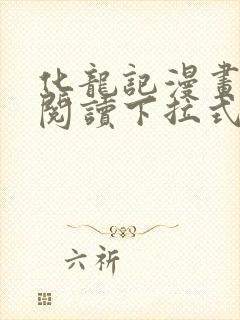 化龍記漫畫
閱讀下拉式
六祈